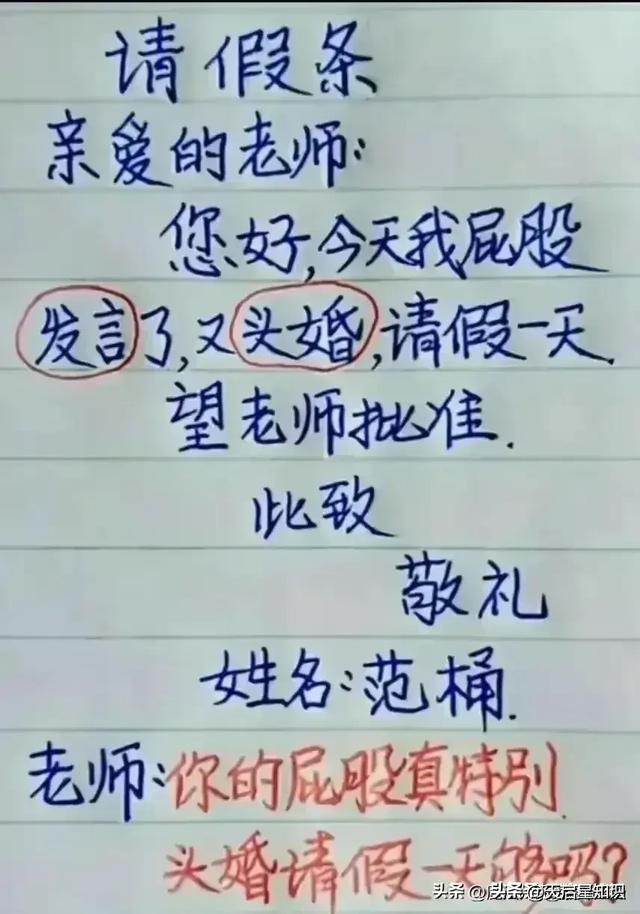 请假条
亲爱的老师:
您好,今天我屁股
发言了,又头婚,请假一天.
望老师批准.
此致
敬礼
姓名:范桶.
老师:你的屁股真特别.
头婚请假一天够吗?
头条